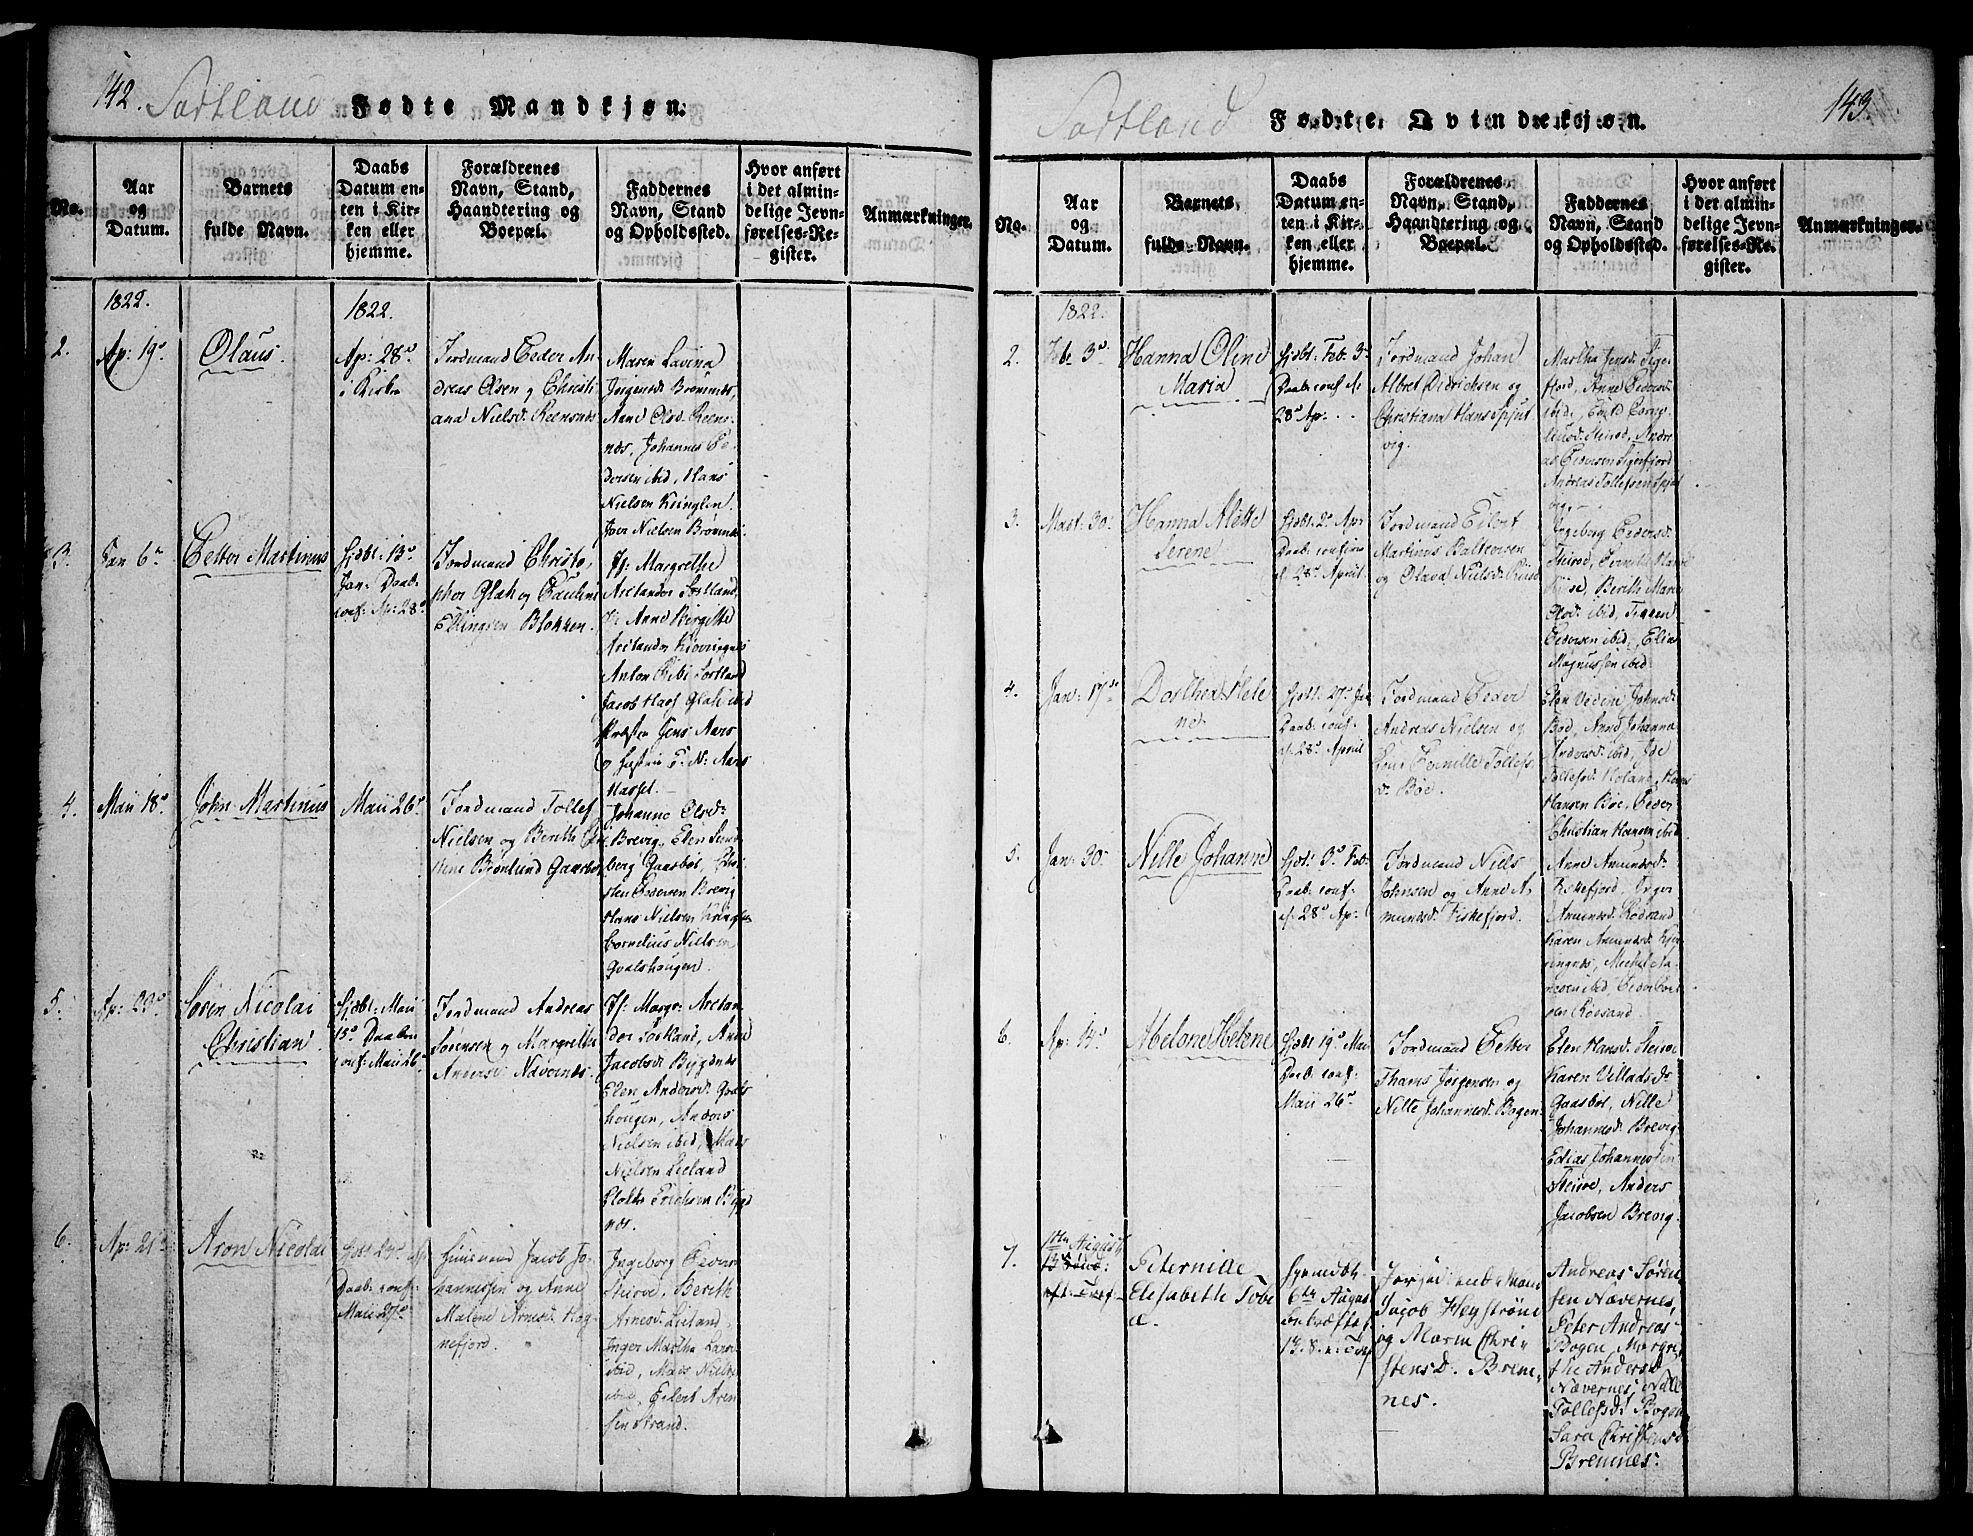 142. Sortland Fødte Mandkjøn.
No.
Aar
og
Datum.
Barnets
fulde Navn.
Daabs
Datum en-
ten i Kir-
ken eller
hjemme.
Forældrenes
Navn, Stand,
Haandtering og
Boepæl.
Faddernes
Navn, Stand
og Opholdssted.
Hvor anført
i det almin-
delige Jevn-
førelses-Re-
gister.
Anmærkninger.
1822.
1822.
2.
Ap: 19de
Olaus.
Ap: 28de
i Kirken
Jordmand Peder An
dreas Olsen og Christi
ana Nielsd: Reensnæs
Maren Lavina
Jørgensd: Bremnæs,
Anne Olsd: Reens-
næs, Johannes Pe-
dersen ibid, Hans
Nielsen Kringlen
Joer Nielsen Bremnæs
3.
Jan 6te
Petter Martinus
Hjdbt: 13de
Jan: Daab.
conf: Ap: 28de
Jordmand Christo,
pher Glah og Pauline
Ellingsen Blokken.
Jf: Margrethe
Arctander Sortland,
Jf: Anne Birgitte
Arctander Kjøringnæs
Anton Sortland
Jacob Glah ibid
Jens Aars
Hassel.
4.
Maii 18de
John Martinus
Maii 26de
Jordmand Tollef
Nielsen og Berith
Brønlund Gaasbøe
Johanna Olsd:
Brevig, Elen Lund
berg Gaasbøe,
sten Pedersen Brevig
Hans Nielsen Kringlen
Cornelius Nielsen
Qvalshougen.
5.
Ap: 23de
Søren Nicolai
Christian.
Hjdbt: Maii
15de Daaben
conf: Maii 26de
Jordmand Andreas
Sørensen og Margrethe
Andersd: Nævernæs
Jf: Margr: Arctan
der Sortland, Anne
Jacobsd: Bygdnæs
Elen Andersd: Qvals
hougen, Anders
Nielsen ibid, Mons
Nielsen Liland
Erichsen Bygd
næs.
6.
Ap: 21de
Aron Nicolai
Daab: conf:
Maii 27de
Huusmand Jacob Jo-
hannessen og Anne
Malene Arnesd: Hog
nefjord.
Ingeborg Peders
Steiroe, Berith
Arnesd: Liland,
Inger Martha
ibid, Mons Niels
ibid, Eilert Aren
sen Strand.
Sortland Fødte Qvindekjøn. 143.
No.
Aar
og
Datum.
Barnets
fulde Navn.
Daabs
Datum en-
ten i Kir-
ken eller
hjemme.
Forældrenes
Navn, Stand,
Haandtering og
Boepæl.
Faddernes
Navn, Stand
og Opholdssted.
Hvor anført
i det almin-
delige Jevn-
førelses-Re-
gister.
Anmærkninger.
1822.
2.
Feb: 3de
Hanna Oline
Maria
Hjdbt: Feb: 3de
Daab conf: d:
28de Ap:
Jordmand Johan
Albret Didrichsen og
Christiana Hansd Spjut
vig.
Martha Jensd: Sige-
fjord, Anne Pedersd:
ibid, Corne
liusd: Steiroe, Andre
as Pedersen Sigerfjord
Andreas Tollefsen Spjut
vig.
3.
Mart: 30.
Hanna Alette
Serene
Hjdbt: 2de Apr
Daab: confirm
d. 28de April
Jordmand Eilert
Martinus Baltzersen
og Olava Nielsd:
Ingeborg Pedersd:
Steiroe, Pernille Marie
Berith Marie
Olsd: ibid,
Pedersen ibid, Elias
Magnussen ibid.
4.
Jan: 17de
Dorthea Hele
ne.
Hjdbt: 27de Jan
Daab: conf:
d. 28de April
Jordmand Peder
Andreas Nielsen og
Pernille Tollefs
d: Bøe.
Elen Johnsd:
Bøe, Anne Johanna
Andersd: ibid, Ide
Tollefsd: Holand, Hans
Hansen Bøe, Peder
Christian Hansen ibid
5.
Jan: 30
Nille Johanne
Hjdbt: 3de Feb:
Daab: conf:
d. 28de Ap:
Jordmand Niels
Johnsen og Anne A-
mundsd: Fiskefjord.
Anne Amundsd:
Fiskefjord, Inger
Amundsd: Rødsand
Karen Amundsd: Kjø
ringnæs, Michel
ibid, Peder
Rødsand.
6.
Ap: 14de
Melone Helene
Hjdbt 19de Maii
Daab: conf:
Maii 26de
Jordmand Petter
Thams Jørgensen og
Nille Johannesd: Bogen.
Elen Hansd: Steiroe
Karen Villadsdr
Gaasbøe, Nille
Johannesd: Brevig
Edias Johannessen
Steiroe, Anders
Jacobsen Brevig.
7.
10de August
Peternille
Elisabeth Tobe
a.
Hjemedbt:
6te August
bekræftet
13. S. e. Tref
Jacob Heystrøm
og Maren Chri-
stensd. Brem-
nes.
Andreas Søren
sen Nævernes,
Peter Andreas
Bogen, Margre
the Andersd
Nævernes, Nille
Tollefsd: Bogen
Sara Christensd
Bremnes.